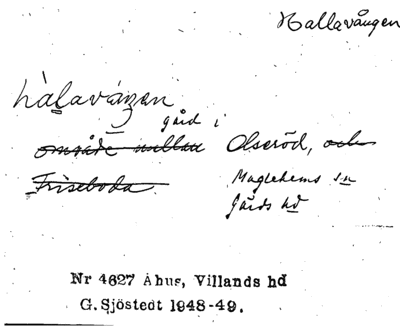 Hallavången
hàlaváŋen
gård i
område mellan Olseröd, och
Friseboda Maglehems sn
Gärds hd
Nr 4627 Åhus, Villands hd
G. Sjöstedt 1948-49.